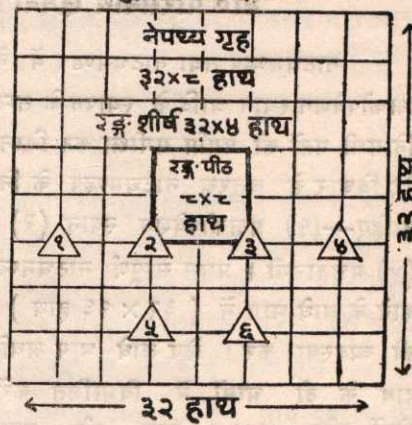 नेपथ्य गृह
३२×८ हाथ
रङ्ग शीर्ष ३२×४ हाथ
रङ्ग-पीठ
८×८
हाथ
१ २ ३ ४
५ ६
३२ हाथ
३२ हाथ